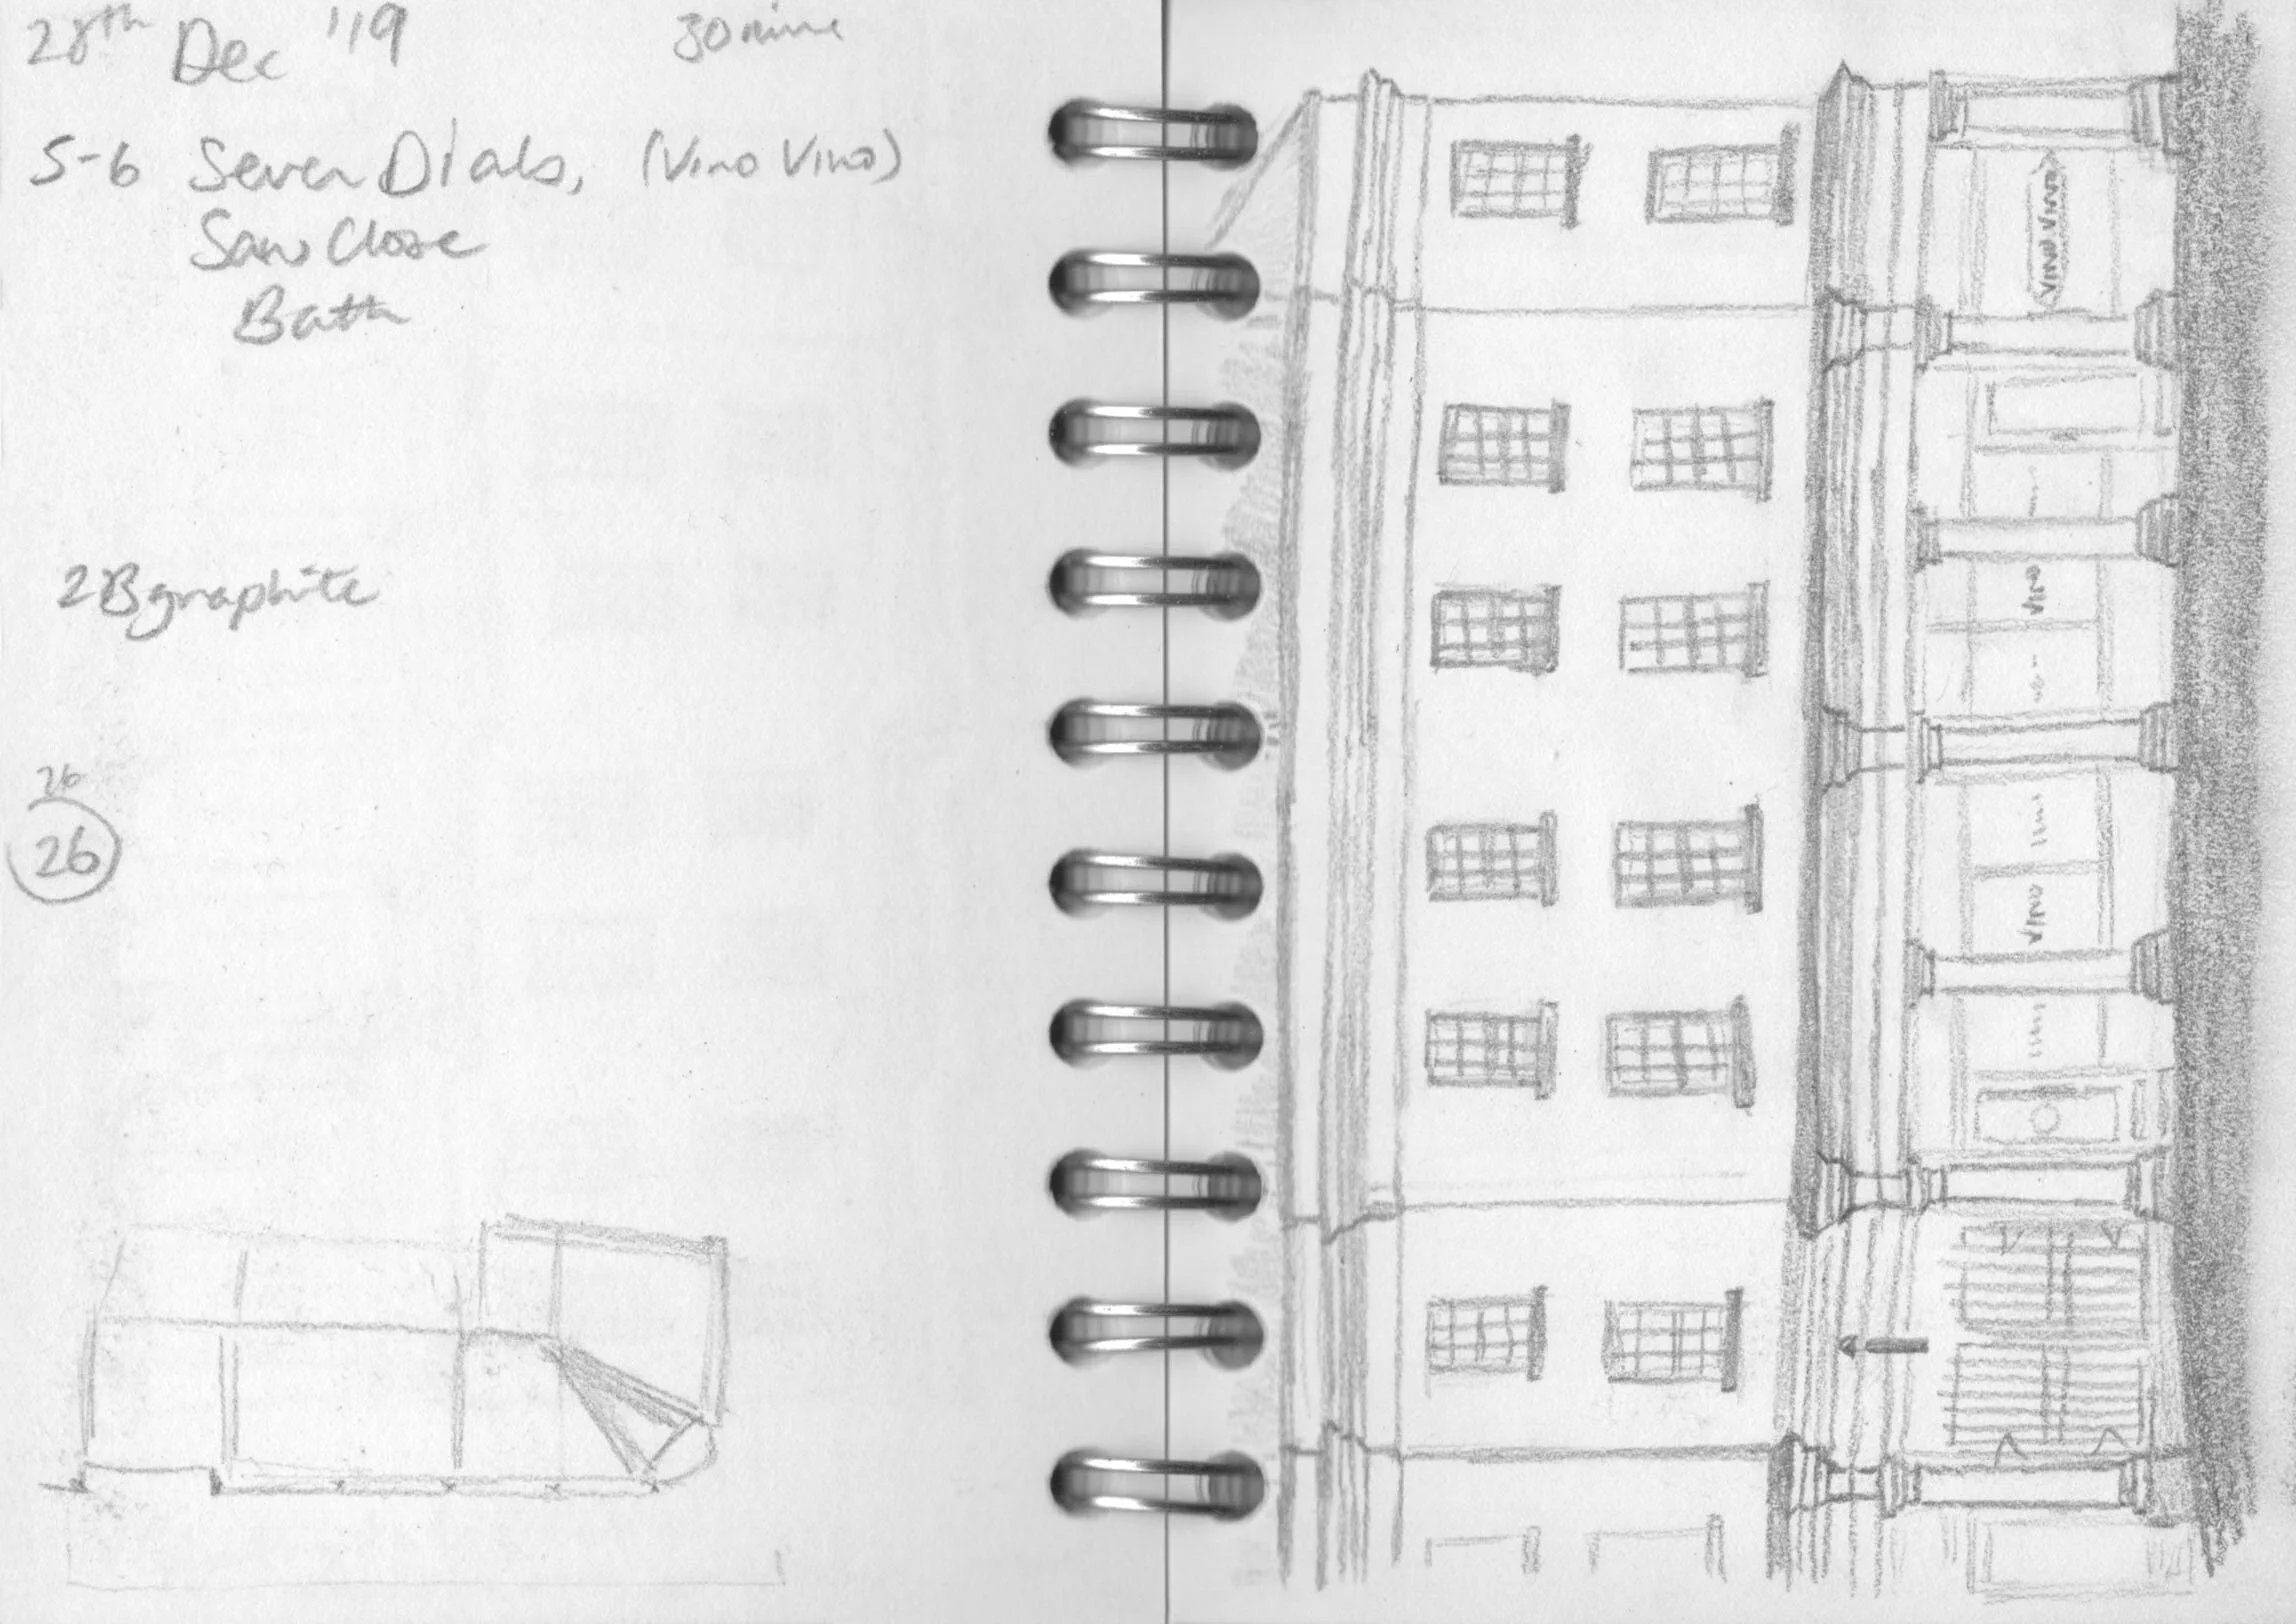 28th Dec '19 30 mins
5-6 Seven Dials, (Vino Vino)
Saw Close
Bath
2B graphite
26
26
VINO VINO
VINO
VINO